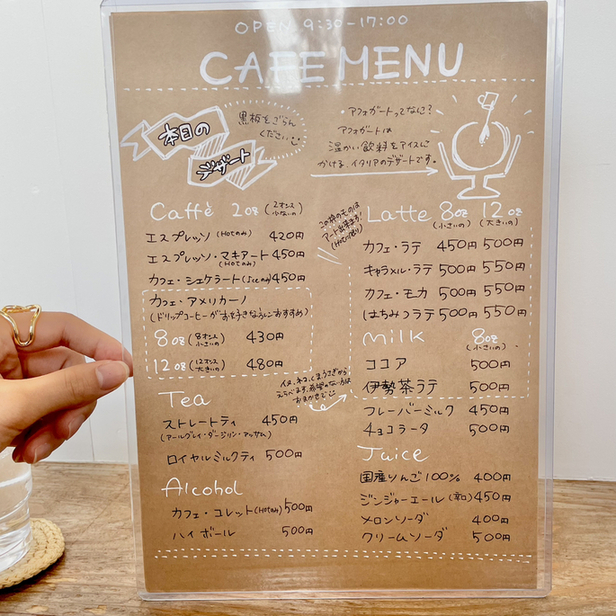 OPEN 9:30-17:00
CAFE MENU
本日の
デザート
黒板をごらん
ください
・アフォガートってなに?
アフォガートは
温かい飲料をアイスに
かける、イタリアのデザートです。
Caffè 2oz (2オンス 少ないの)
エスプレッソ(Hotのみ) 420円
エスプレッソ・マキアート(Hotのみ) 450円
カフェ・シェケラート(Iceのみ) 450円
カフェ・アメリカーノ
(ドリップコーヒーがお好きな方におすすめ)
8oz (8オンス 小さいの) 430円
12oz (12オンス 大きいの) 480円
Tea
ストレートティ 450円
(アールグレイ・ダージリン・アッサム)
ロイヤルミルクティ 500円
Alcohol
カフェ・コレット(Hotのみ) 500円
ハイボール 500円
この枠のものは
アート出来ます!
(Hotのみ)
Latte 8oz (小さいの) 12oz (大きいの)
カフェ・ラテ 450円 500円
キャラメル・ラテ 500円 550円
カフェ・モカ 500円 550円
はちみつラテ 500円 550円
milk 8oz (小さいの)
ココア 500円
伊勢茶ラテ 500円
フレーバーミルク 450円
チョコラータ 500円
イヌ、ネコ、くま、うさぎから
えらべます。
Juice
国産りんご100% 400円
ジンジャーエール(辛口) 450円
メロンソーダ 400円
クリームソーダ 500円